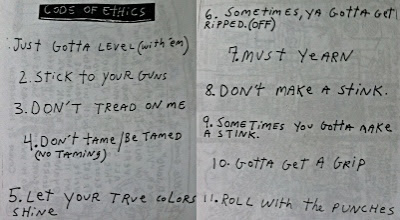 CODE OF ETHICS
1. JUST GOTTA LEVEL (with 'em)
2. STICK TO YOUR GUNS
3. DON'T TREAD ON ME
4. DON'T TAME/BE TAMED
(NO TAMING)
5. LET YOUR TRUE COLORS
SHINE
6. SOMETIMES, YA GOTTA GET
RIPPED. (OFF)
7. MUST YEARN
8. DON'T MAKE A STINK.
9. SOMETIMES YOU GOTTA MAKE
A STINK.
10. GOTTA GET A GRIP
11. ROLL WITH the PUNCHES